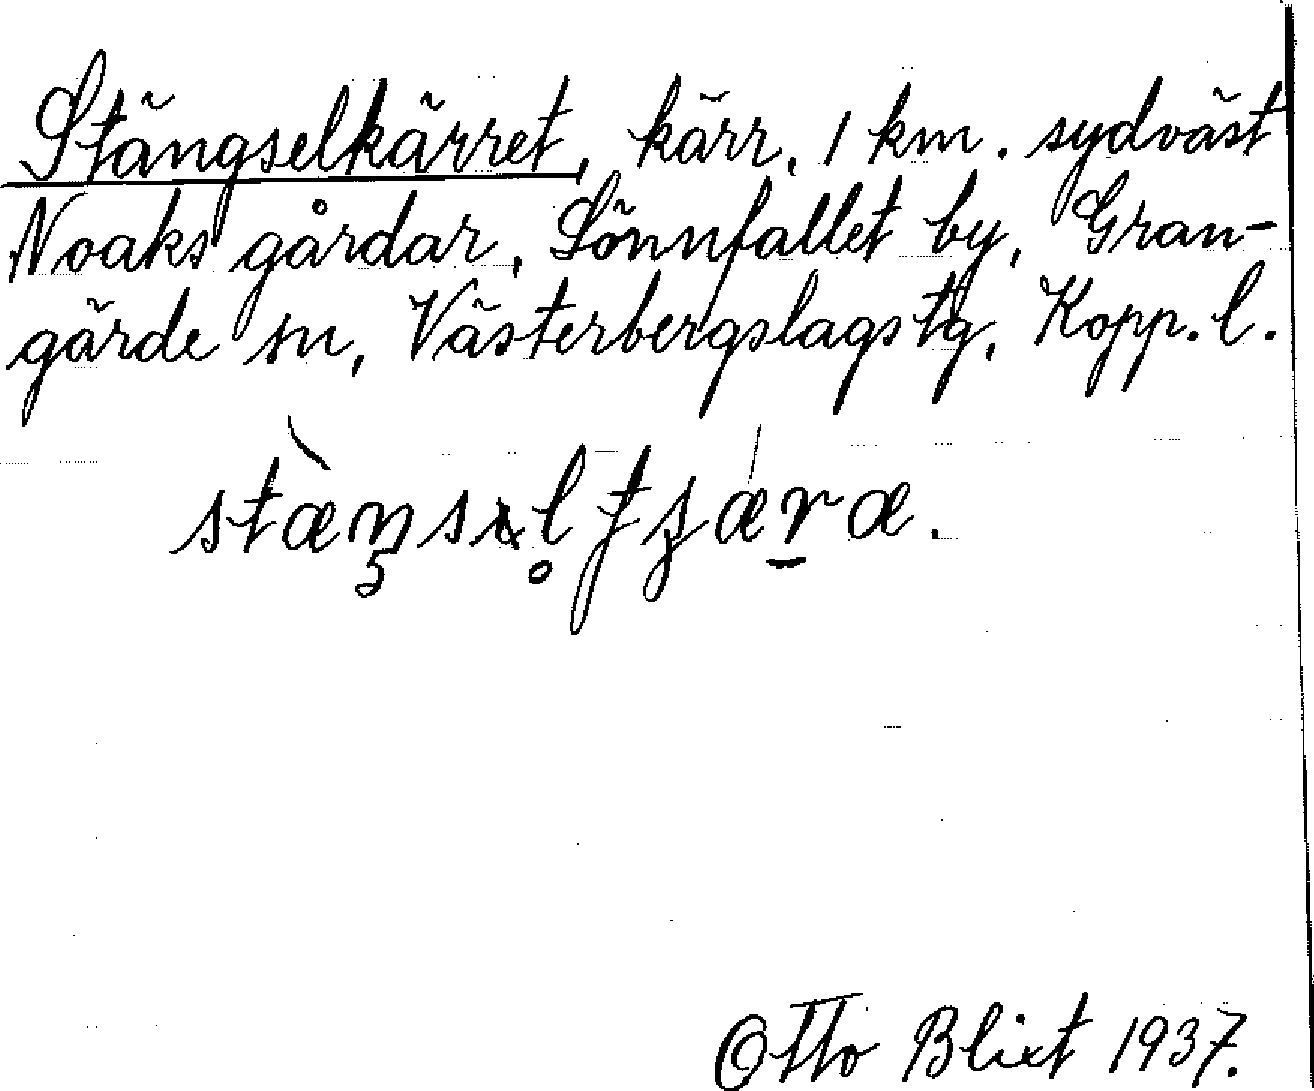 Stängselkärret, kärr, 1 km. sydväst
Noaks gårdar, Sönnfallet by, Gran-
gärde sn, Västerbergslags tg, Kopp. l.
Otto Blixt 1937.